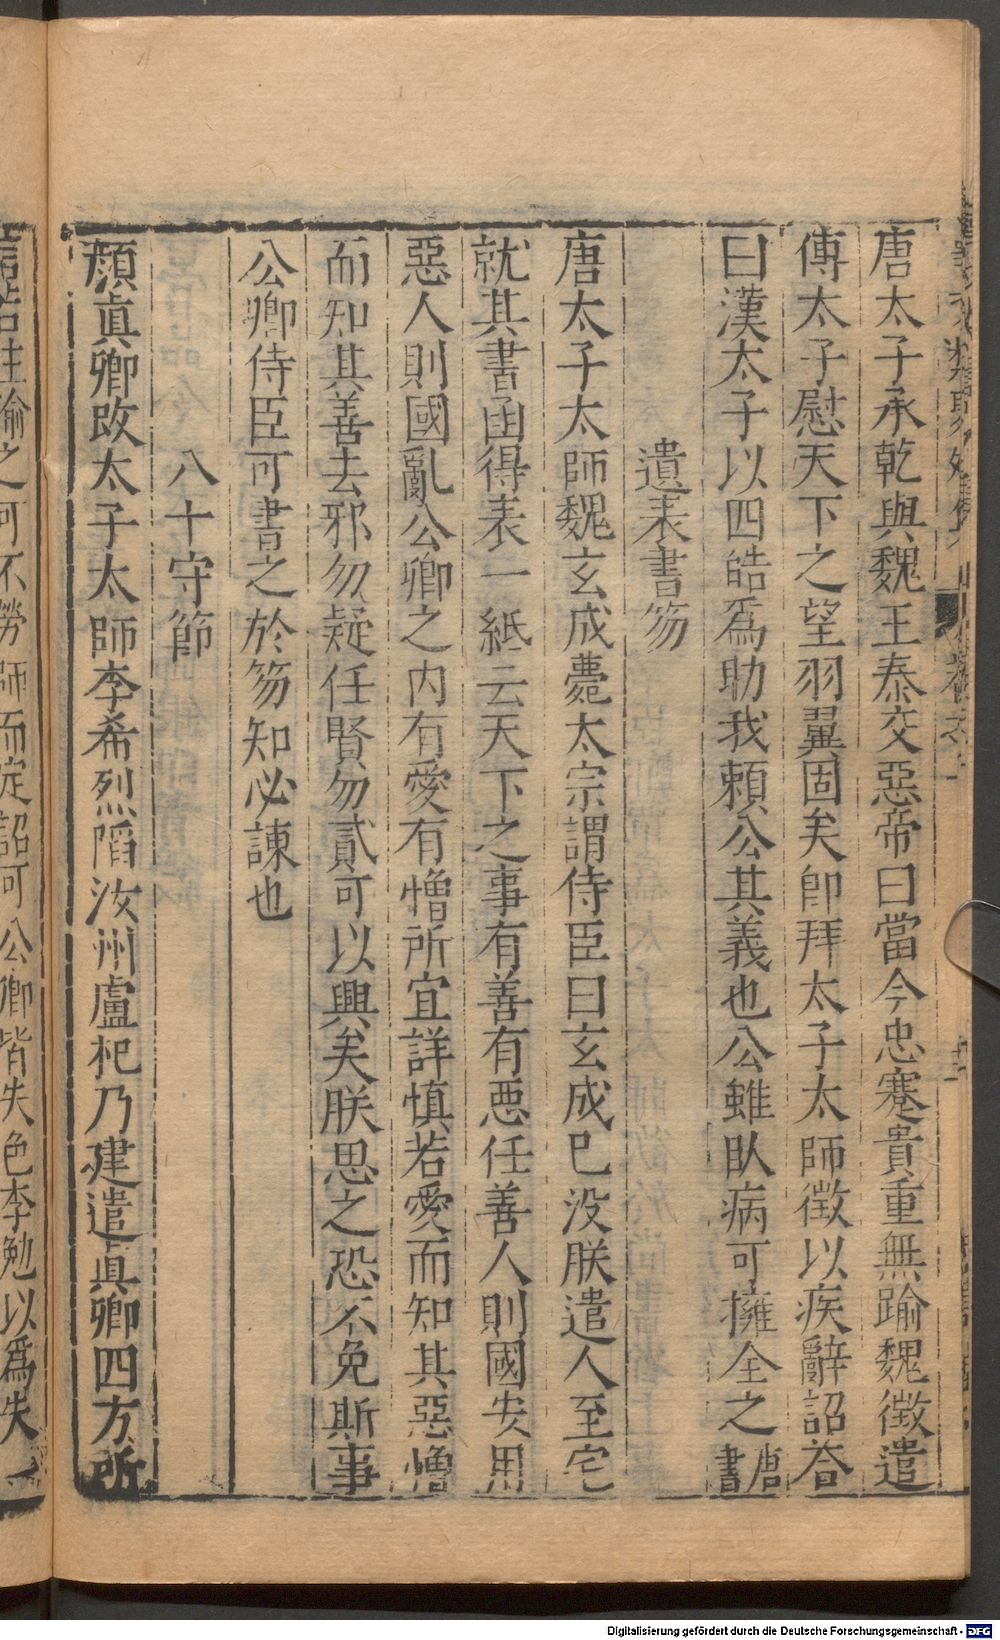 唐太子承乾與魏王泰交惡帝曰當今忠蹇貴重無踰魏徵遣
傅太子慰天下之望羽翼固矣卽拜太子太師徵以疾辭詔荅
曰漢太子以四皓爲助我賴公其義也公雖臥病可擁全之唐書
遺表書笏
唐太子太師魏玄成薨太宗謂侍臣曰玄成已没朕遣人至宅
就其書函得表一紙云天下之事有善有惡任善人則國安用
惡人則國亂公卿之内有愛有憎所宜詳慎若愛而知其惡憎
而知其善去邪勿疑任賢勿貳可以興矣朕思之恐不免斯事
公卿侍臣可書之於笏知必諫也
八十守節
顏眞卿改太子太師李希烈陷汝州盧杞乃建遣眞卿四方所
主諭之可不勞師而定詔可公卿皆失色李勉以爲失
Digitalisierung gefördert durch die Deutsche Forschungsgemeinschaft - DFG